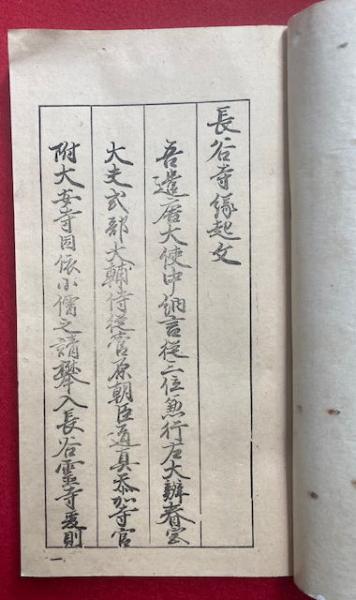 長谷寺縁起文
吾遣唐大使中納言従三位兼行左大辨春宮
大夫式部大輔侍従菅原朝臣道真忝加寺官
附大安寺因依小儒之請攀入長谷霊寺爰則
一